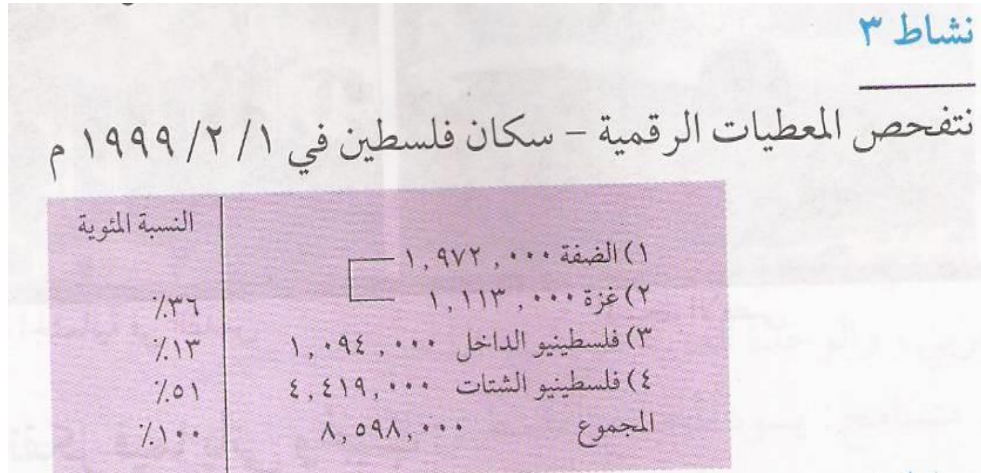 نشاط ٣
نتفحص المعطيات الرقمية – سكان فلسطين في ١ /٢ /١٩٩٩ م
النسبة المئوية
١) الضفة ١,٩٧٢,٠٠٠
٢) غزة ١,١١٣,٠٠٠ ٣٦٪
٣) فلسطينيو الداخل ١,٠٩٤,٠٠٠ ١٣٪
٤) فلسطينيو الشتات ٤,٤١٩,٠٠٠ ٥١٪
المجموع ٨,٥٩٨,٠٠٠ ١٠٠٪